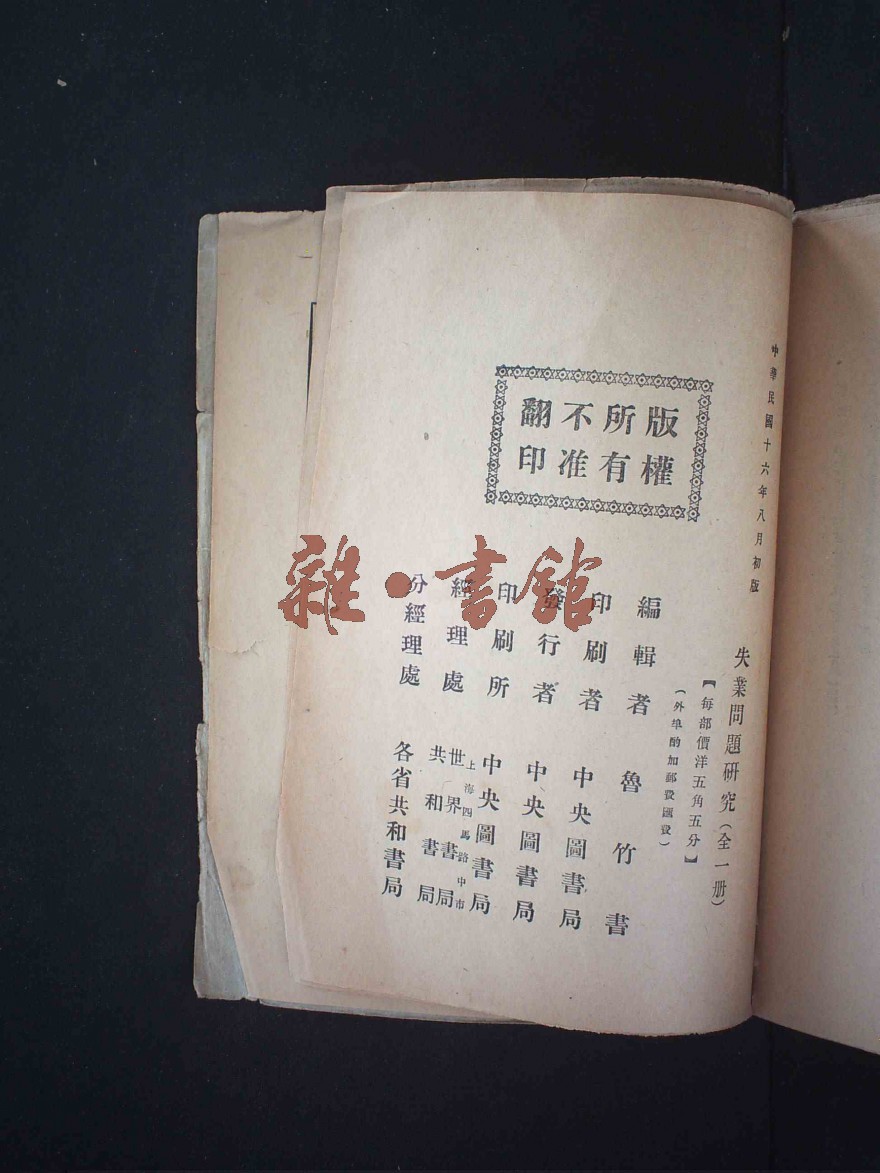 中華民國十六年八月初版
失業問題研究(全一册)
【每部價洋五角五分】
(外埠酌加郵費匯費)
版權
所有
不准
翻印
編輯者 魯竹書
印刷者 中央圖書局
發行者 中央圖書局
印刷所 中央圖書局
經理處 上海四馬路中市
世界書局
共和書局
分經理處 各省共和書局
雜·書館